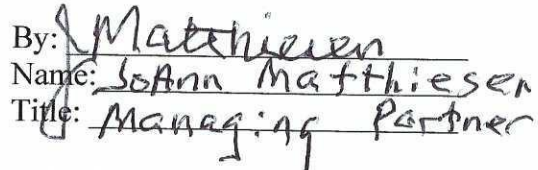 By: J Matthiesen
Name: JoAnn Matthiesen
Title: Managing Partner